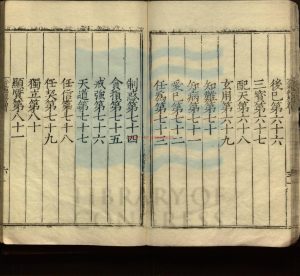 後已第六十六
三寶第六十七
配天第六十八
玄用第六十九
知難第七十
知病第七十一
愛已第七十二
任為第七十三
制惑第七十四
貪損第七十五
戒強第七十六
天道第七十七
任信第七十八
任契第七十九
獨立第八十
顯質第八十一
LIBRARY OF
CONGRESS